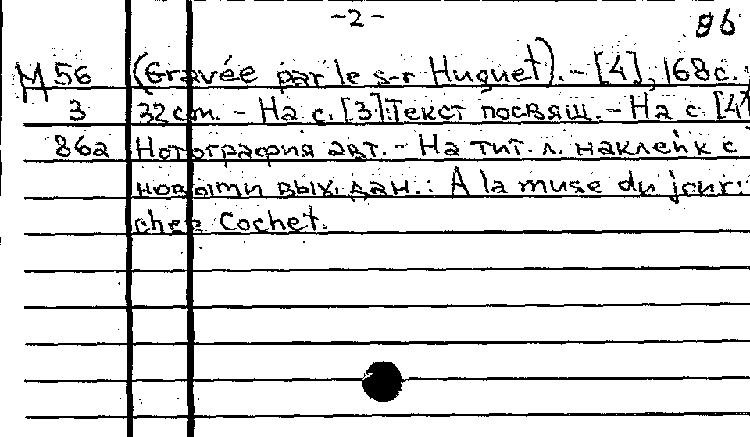 -2- 86
М 56 (Gravée par le s-r Huguet). – [4], 168 с.;
3 32 см. – На с. [3]: Текст посвящ. – На с. [4]
86а Нотография авт. – На тит. л. наклейк с
новыми вых. дан.: A la muse du jour:
chez Cochet.